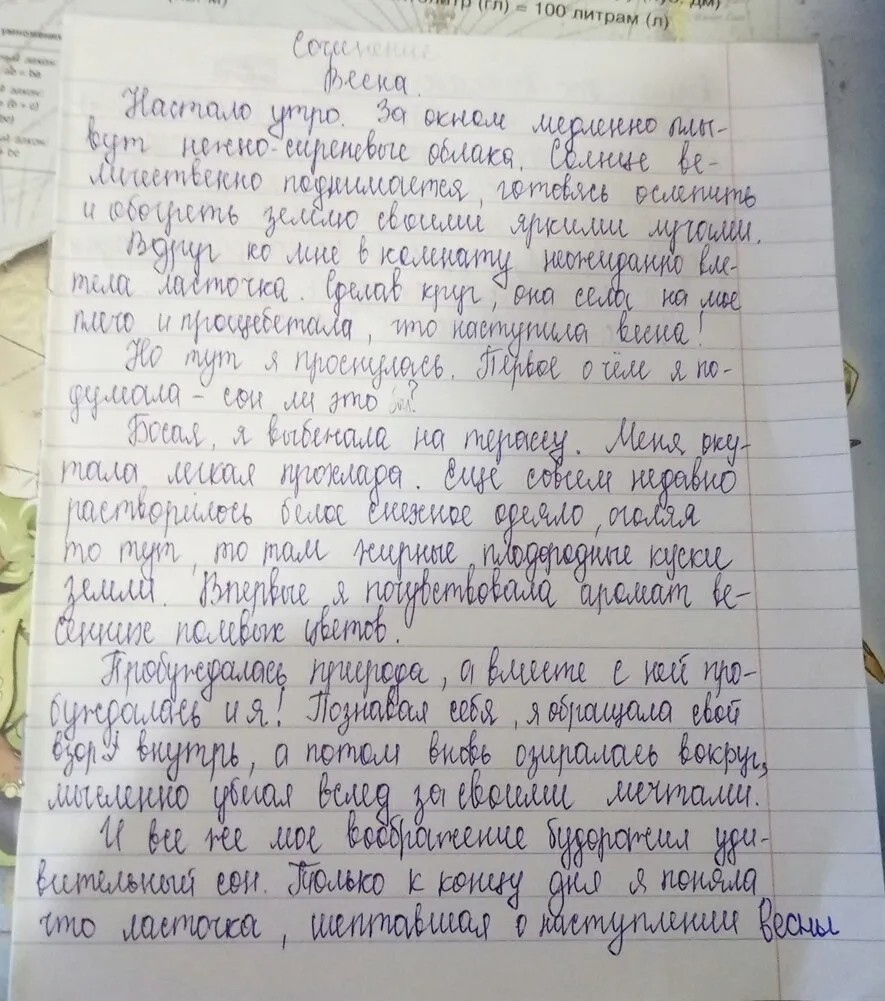 тр (гл) = 100 литрам (л)
Сочинение
Весна.
Настало утро. За окном медленно плы-
вут нежно-сиреневые облака. Солнце ве-
личественно поднимается, готовясь ослепить
и обогреть землю своими яркими лучами.
Вдруг ко мне в комнату неожиданно вле-
тела ласточка. Сделав круг, она села на мое
плечо и прощебетала, что наступила весна!
Но тут я проснулась. Первое о чём я по-
думала - сон ли это ?
Босая, я выбежала на терассу. Меня оку-
тала легкая прохлада. Еще совсем недавно
растворилось белое снежное одеяло, оголяя
то тут, то там жирные, плодородные куски
земли. Впервые я почувствовала аромат ве-
сенних полевых цветов.
Пробуждалась природа, а вместе с ней про-
буждалась и я! Познавая себя, я обращала свой
взор внутрь, а потом вновь озиралась вокруг,
мысленно убегая вслед за своими мечтами.
И все же мое воображение будоражил уди-
вительный сон. Только к концу дня я поняла
что ласточка, шептавшая о наступлении весны